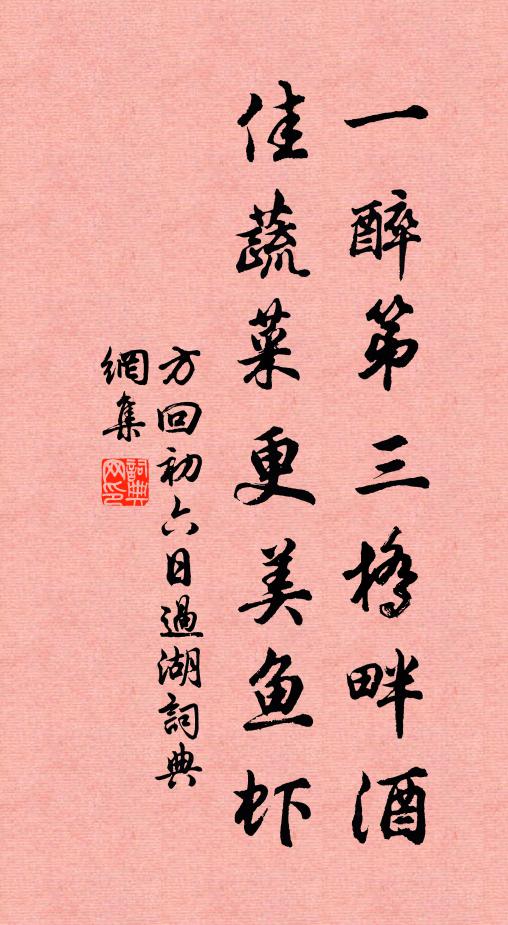 一醉第三橋畔酒
佳蔬菜更美鱼虾
方回初六日過湖詞典
網集
詞典网印